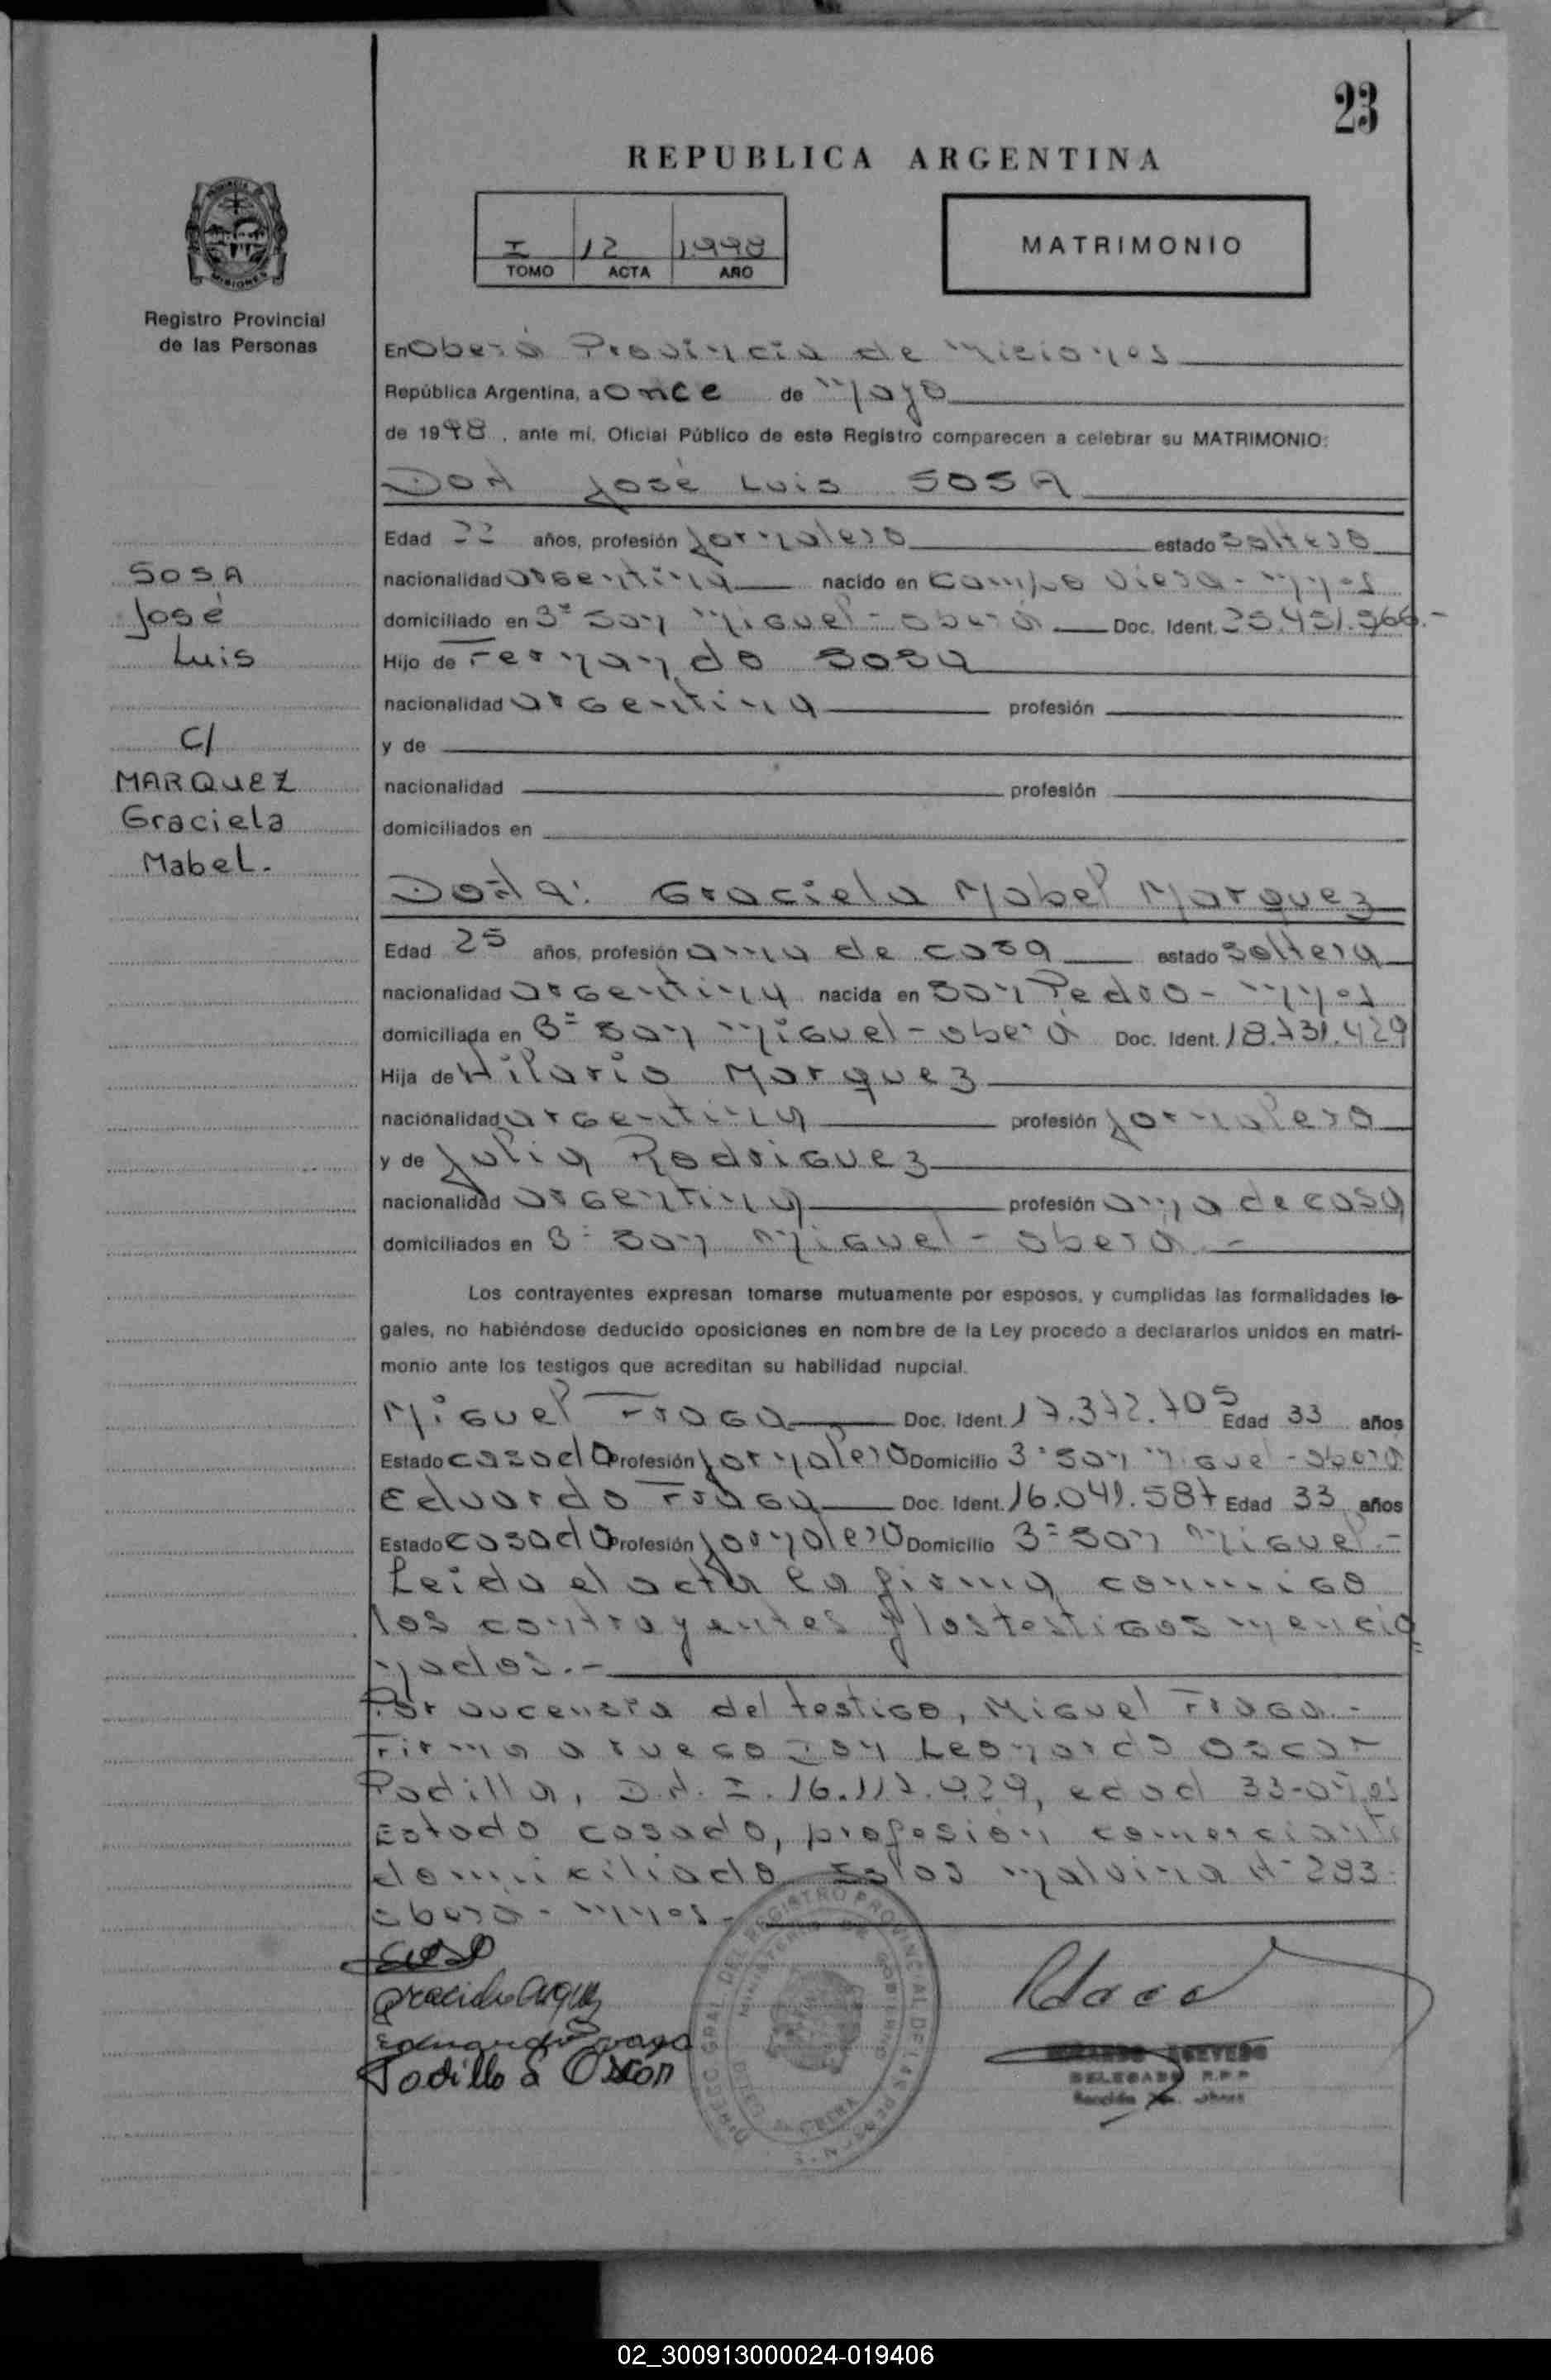 23
REPUBLICA ARGENTINA
I 12 1.998
TOMO ACTA AÑO
MATRIMONIO
PROVINCIA DE MISIONES
Registro Provincial
de las Personas
En Oberá Provincia de Misiones
República Argentina, a once de Mayo
de 1998, ante mí, Oficial Público de este Registro comparecen a celebrar su MATRIMONIO:
DON José Luis SOSA
Edad 22 años, profesión Jornalero estado soltero
nacionalidad argentina nacido en Campo Viera - Mnes
domiciliado en Bº San Miguel - Oberá Doc. Ident. 25.451.966.-
Hijo de Fernando Sosa
nacionalidad argentina profesión
y de
nacionalidad profesión
domiciliados en
SOSA
José
Luis
C/
MARQUEZ
Graciela
Mabel.
Doña: Graciela Mabel Marquez
Edad 25 años, profesión ama de casa estado soltera
nacionalidad argentina nacida en San Pedro - Mnes
domiciliada en Bº San Miguel - Oberá Doc. Ident. 18.731.429
Hija de Hilario Marquez
nacionalidad argentina profesión Jornalero
y de Julia Rodriguez
nacionalidad argentina profesión ama de casa
domiciliados en Bº San Miguel - Oberá -
Los contrayentes expresan tomarse mutuamente por esposos, y cumplidas las formalidades le-
gales, no habiéndose deducido oposiciones en nombre de la Ley procedo a declararlos unidos en matri-
monio ante los testigos que acreditan su habilidad nupcial.
Miguel Fraga Doc. Ident. 17.372.705 Edad 33 años
Estado casado Profesión Jornalero Domicilio Bº San Miguel - Oberá
Eduardo Fraga Doc. Ident. 16.041.587 Edad 33 años
Estado casado Profesión Jornalero Domicilio Bº San Miguel -
Leida el acta la firma conmigo
los contrayentes y los testigos mencio
nados.-
Por ausencia del testigo, Miguel Fraga.-
Firma a ruego Don Leonardo Oscar
Padilla, D.N.I. 16.117.929, edad 33 años
Estado casado, profesión comerciante
domiciliado Islas Malvina Nº 293
Oberá - Mnes -
Padilla L Oscar
DIREC. GRAL. DEL REGISTRO PROVINCIAL DE LAS PERSONAS
MINISTERIO DE GOBIERNO
OBERA
ACEVEDO
DELEGADO R.P.P
02_300913000024-019406